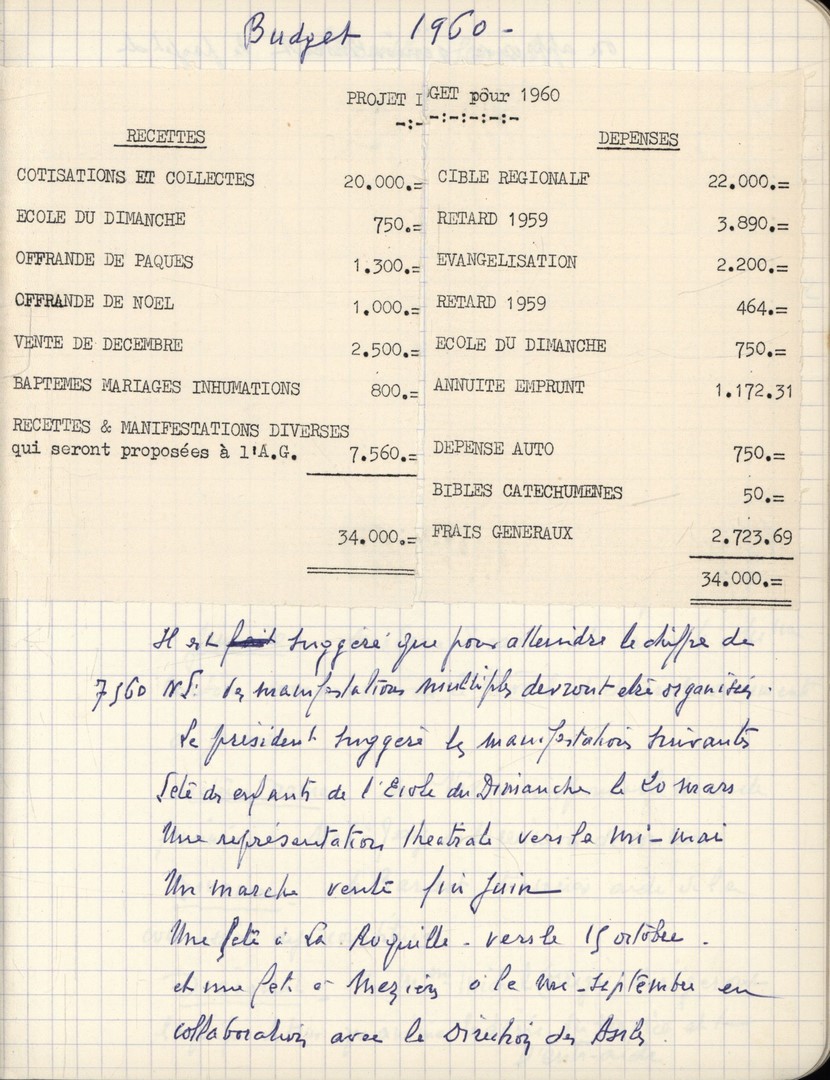 Budget 1960 -
PROJET I GET pour 1960
-:- -:-:-:-:-
RECETTES
COTISATIONS ET COLLECTES 20.000.=
ECOLE DU DIMANCHE 750.=
OFFRANDE DE PAQUES 1.300.=
OFFRANDE DE NOEL 1.000.=
VENTE DE DECEMBRE 2.500.=
BAPTEMES MARIAGES INHUMATIONS 800.=
RECETTES & MANIFESTATIONS DIVERSES
qui seront proposées à l'A.G. 7.560.=
34.000.=
DEPENSES
CIBLE REGIONALE 22.000.=
RETARD 1959 3.890.=
EVANGELISATION 2.200.=
RETARD 1959 464.=
ECOLE DU DIMANCHE 750.=
ANNUITE EMPRUNT 1.172.31
DEPENSE AUTO 750.=
BIBLES CATECHUMENES 50.=
FRAIS GENERAUX 2.723.69
34.000.=
Il est suggéré que pour atteindre le chiffre de
7560 NF. des manifestations multiples devront être organisées.
Le président suggère les manifestations suivantes
Fête des enfants de l'Ecole du Dimanche le 20 mars
Une représentation théatrale vers la mi-mai
Un marche vente fin Juin
Une fête à La Roquille - vers le 15 octobre.
et une fete à le mi-septembre en
collaboration avec la Direction des Asiles.